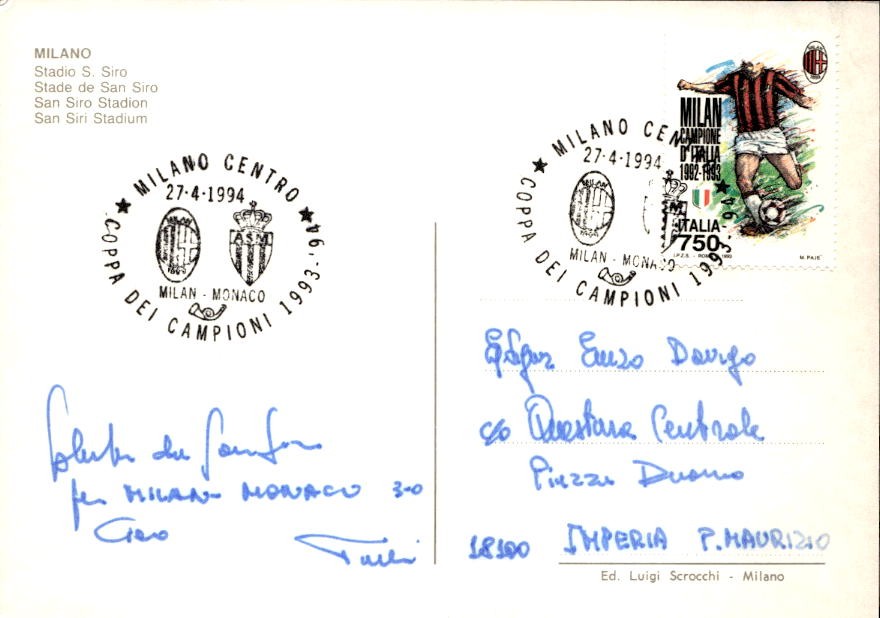 MILANO
Stadio S. Siro
Stade de San Siro
San Siro Stadion
San Siri Stadium
★ MILANO CENTRO ★
27·4·1994
MILAN
1899
A.S.M
MILAN - MONACO
COPPA DEI CAMPIONI 1993-'94
★ MILANO CENTRO ★
27·4·1994
MILAN
MILAN - MONACO
COPPA DEI CAMPIONI 1993-'94
MILAN
CAMPIONE
D'ITALIA
1992-1993
ITALIA
750
I.P.Z.S. - ROMA - 1993
M. PAJE'
Saluti da San Siro
per MILAN - MONACO 3-0
Ciao
Enzo
c/o Questura Centrale
Piazza Duomo
18100 IMPERIA P. MAURIZIO
Ed. Luigi Scrocchi - Milano